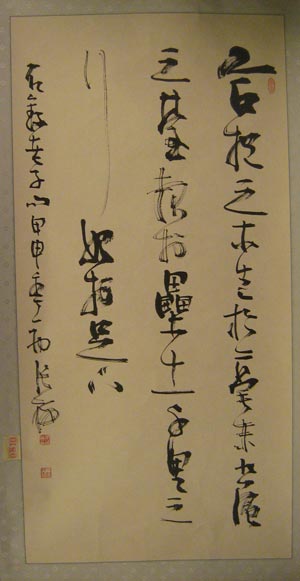 合抱之木生於毫末九層
之臺起於壘土千里之
行始於足下
老子 甲申